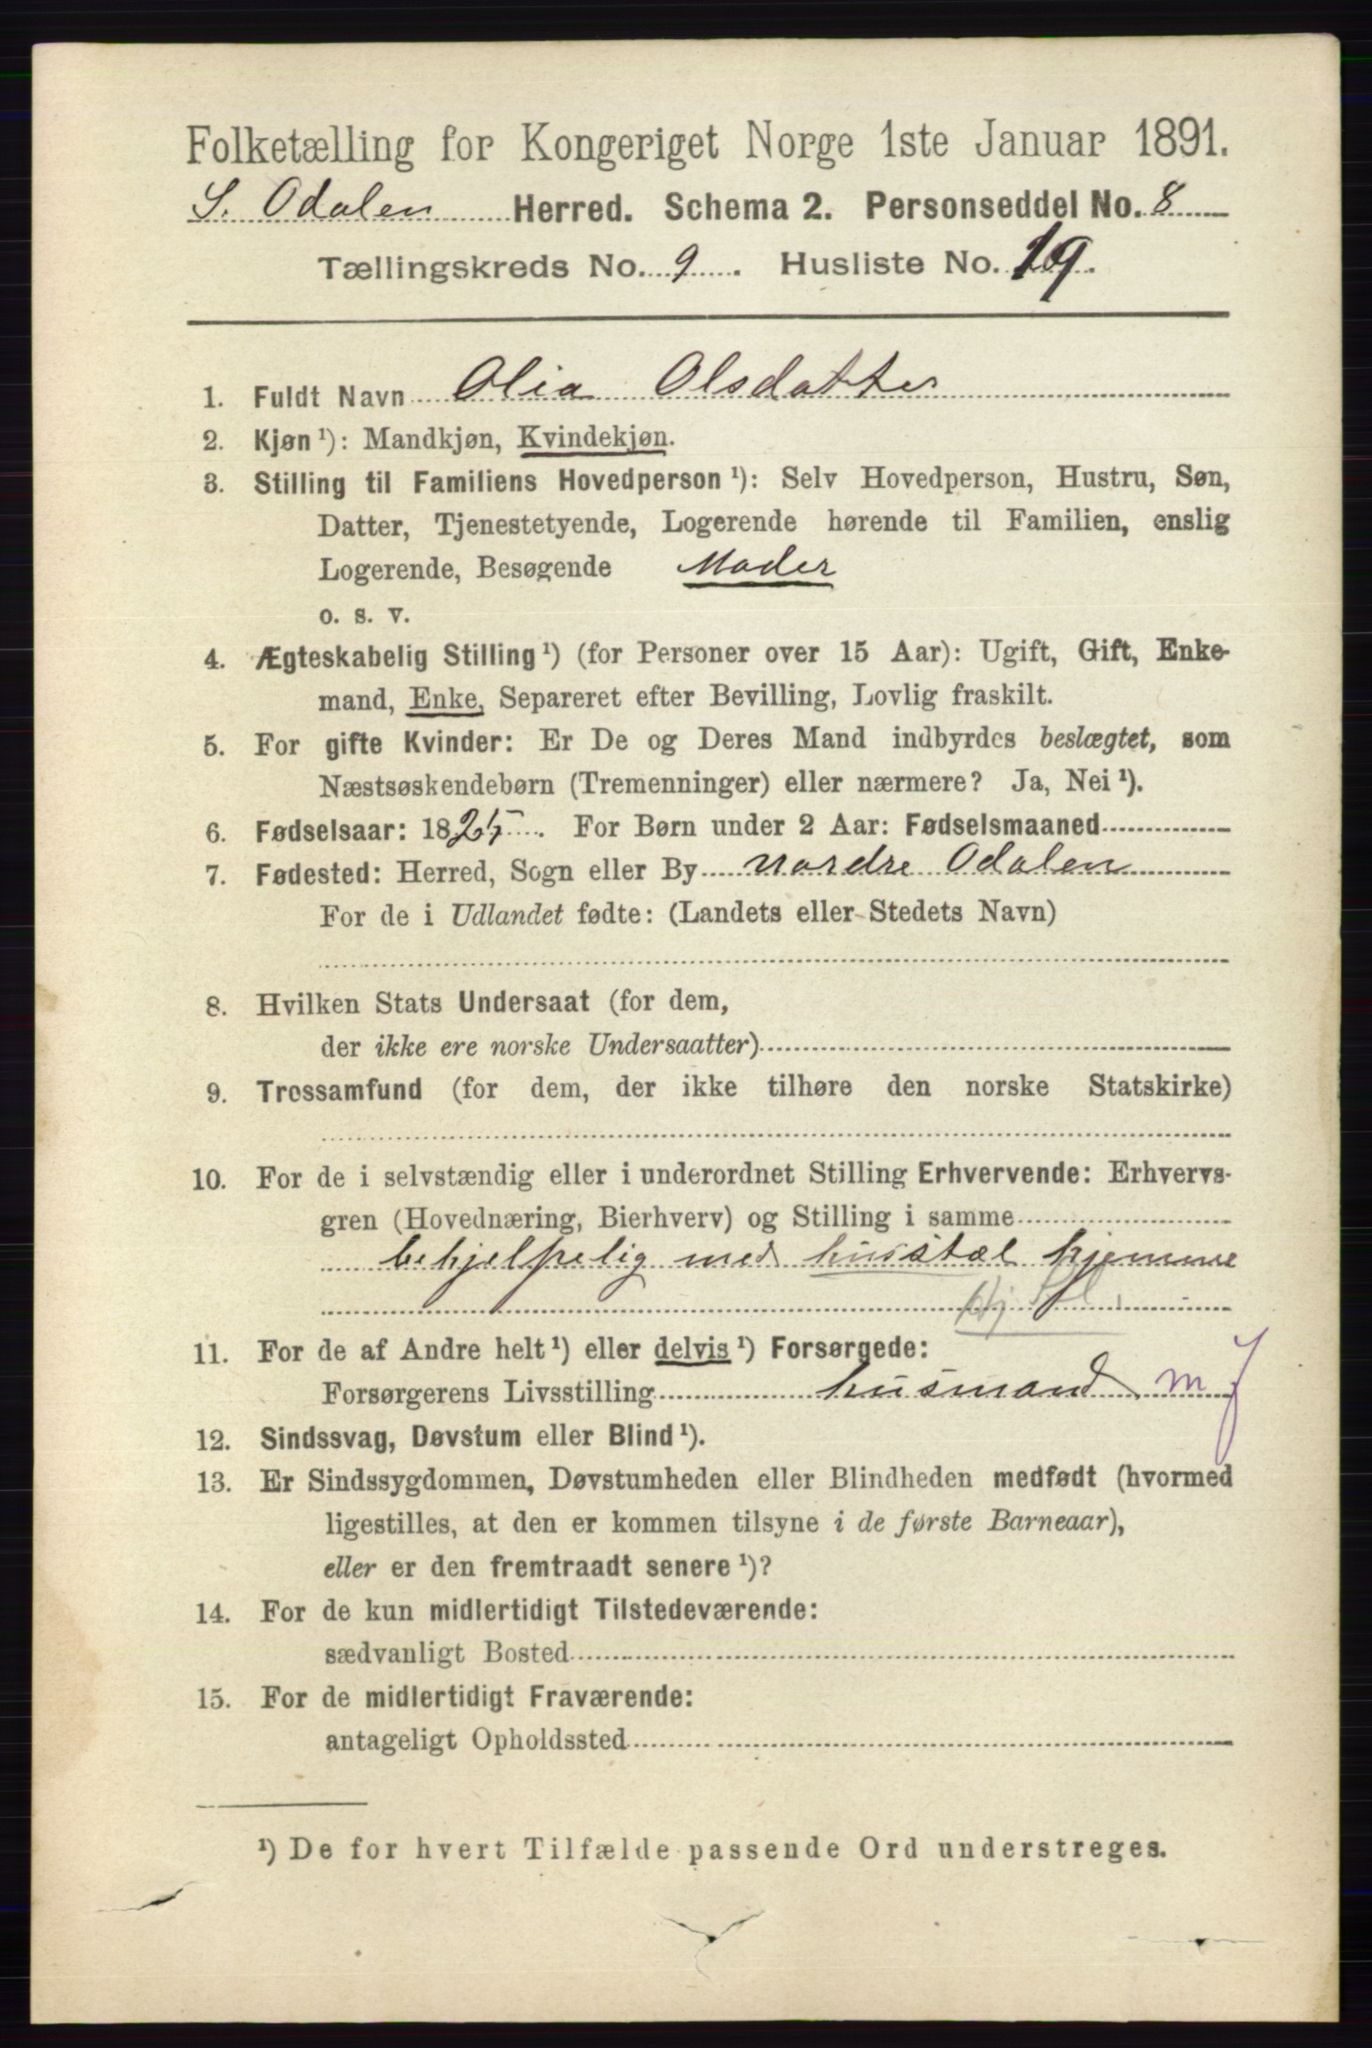 Folketælling for Kongeriget Norge 1ste Januar 1891.
S. Odalen Herred. Schema 2. Personseddel No. 8
Tællingskreds No. 9. Husliste No. 19.
1. Fuldt Navn Olia Olsdatter
2. Kjøn ¹): Mandkjøn, Kvindekjøn.
3. Stilling til Familiens Hovedperson ¹): Selv Hovedperson, Hustru, Søn,
Datter, Tjenestetyende, Logerende hørende til Familien, enslig
Logerende, Besøgende Moder
o. s. v.
4. Ægteskabelig Stilling ¹) (for Personer over 15 Aar): Ugift, Gift, Enke-
mand, Enke, Separeret efter Bevilling, Lovlig fraskilt.
5. For gifte Kvinder: Er De og Deres Mand indbyrdes beslægtet, som
Næstsøskendebørn (Tremenninger) eller nærmere? Ja, Nei ¹).
6. Fødselsaar: 1825. For Børn under 2 Aar: Fødselsmaaned
7. Fødested: Herred, Sogn eller By Nordre Odalen
For de i Udlandet fødte: (Landets eller Stedets Navn)
8. Hvilken Stats Undersaat (for dem,
der ikke ere norske Undersaatter)
9. Trossamfund (for dem, der ikke tilhøre den norske Statskirke)
10. For de i selvstændig eller i underordnet Stilling Erhvervende: Erhvervs-
gren (Hovednæring, Bierhverv) og Stilling i samme
behjelpelig med husstæl hjemme
11. For de af Andre helt ¹) eller delvis ¹) Forsørgede:
Forsørgerens Livsstilling husmand m J
12. Sindssvag, Døvstum eller Blind ¹).
13. Er Sindssygdommen, Døvstumheden eller Blindheden medfødt (hvormed
ligestilles, at den er kommen tilsyne i de første Barneaar),
eller er den fremtraadt senere ¹)?
14. For de kun midlertidigt Tilstedeværende:
sædvanligt Bosted
15. For de midlertidigt Fraværende:
antageligt Opholdssted
¹) De for hvert Tilfælde passende Ord understreges.